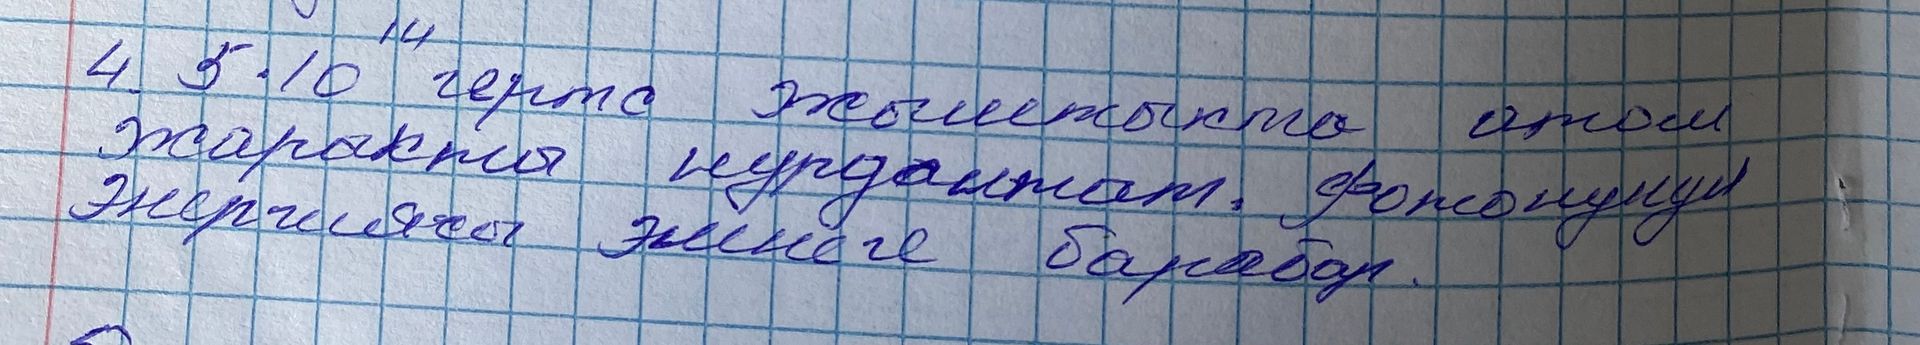 4. 5·10¹⁴ гертс жыштыкта атом
жаракты нурдантат. Фотонунун
энергиясы эмнеге барабар.